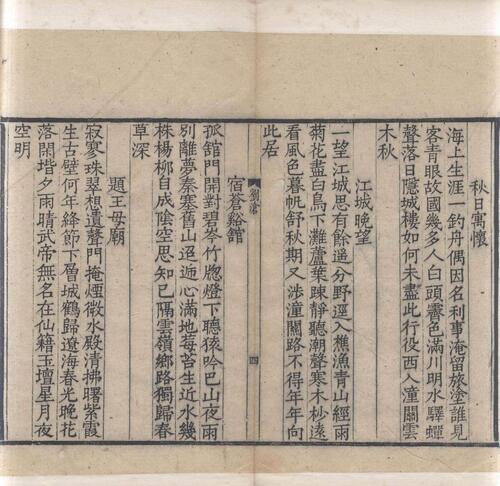 秋日寓懷
海上生涯一釣舟偶因名利事淹留旅塗誰見
客青眼故國幾多人白頭霽色滿川明水驛蟬
聲落日隱城樓如何未盡此行役西入潼關雲
木秋
江城晚望
一望江城思有餘遥分野逕入樵漁青山經雨
菊花盡白鳥下灘蘆葉踈靜聽潮聲寒木杪遠
看風色暮帆舒秋期又涉潼關路不得年年向
此居
劉滄
四
宿蒼谿館
孤館門開對碧岑竹牎燈下聽猿吟巴山夜雨
別離夢秦塞舊山迢遞心滿地莓苔生近水幾
株楊柳自成陰空思知已隔雲嶺鄉路獨歸春
草深
題王母廟
寂寥珠翠想遺聲門掩煙微水殿清拂曙紫霞
生古壁何年絳節下層城鶴歸遼海春光晚花
落閑堦夕雨晴武帝無名在仙籍玉壇星月夜
空明